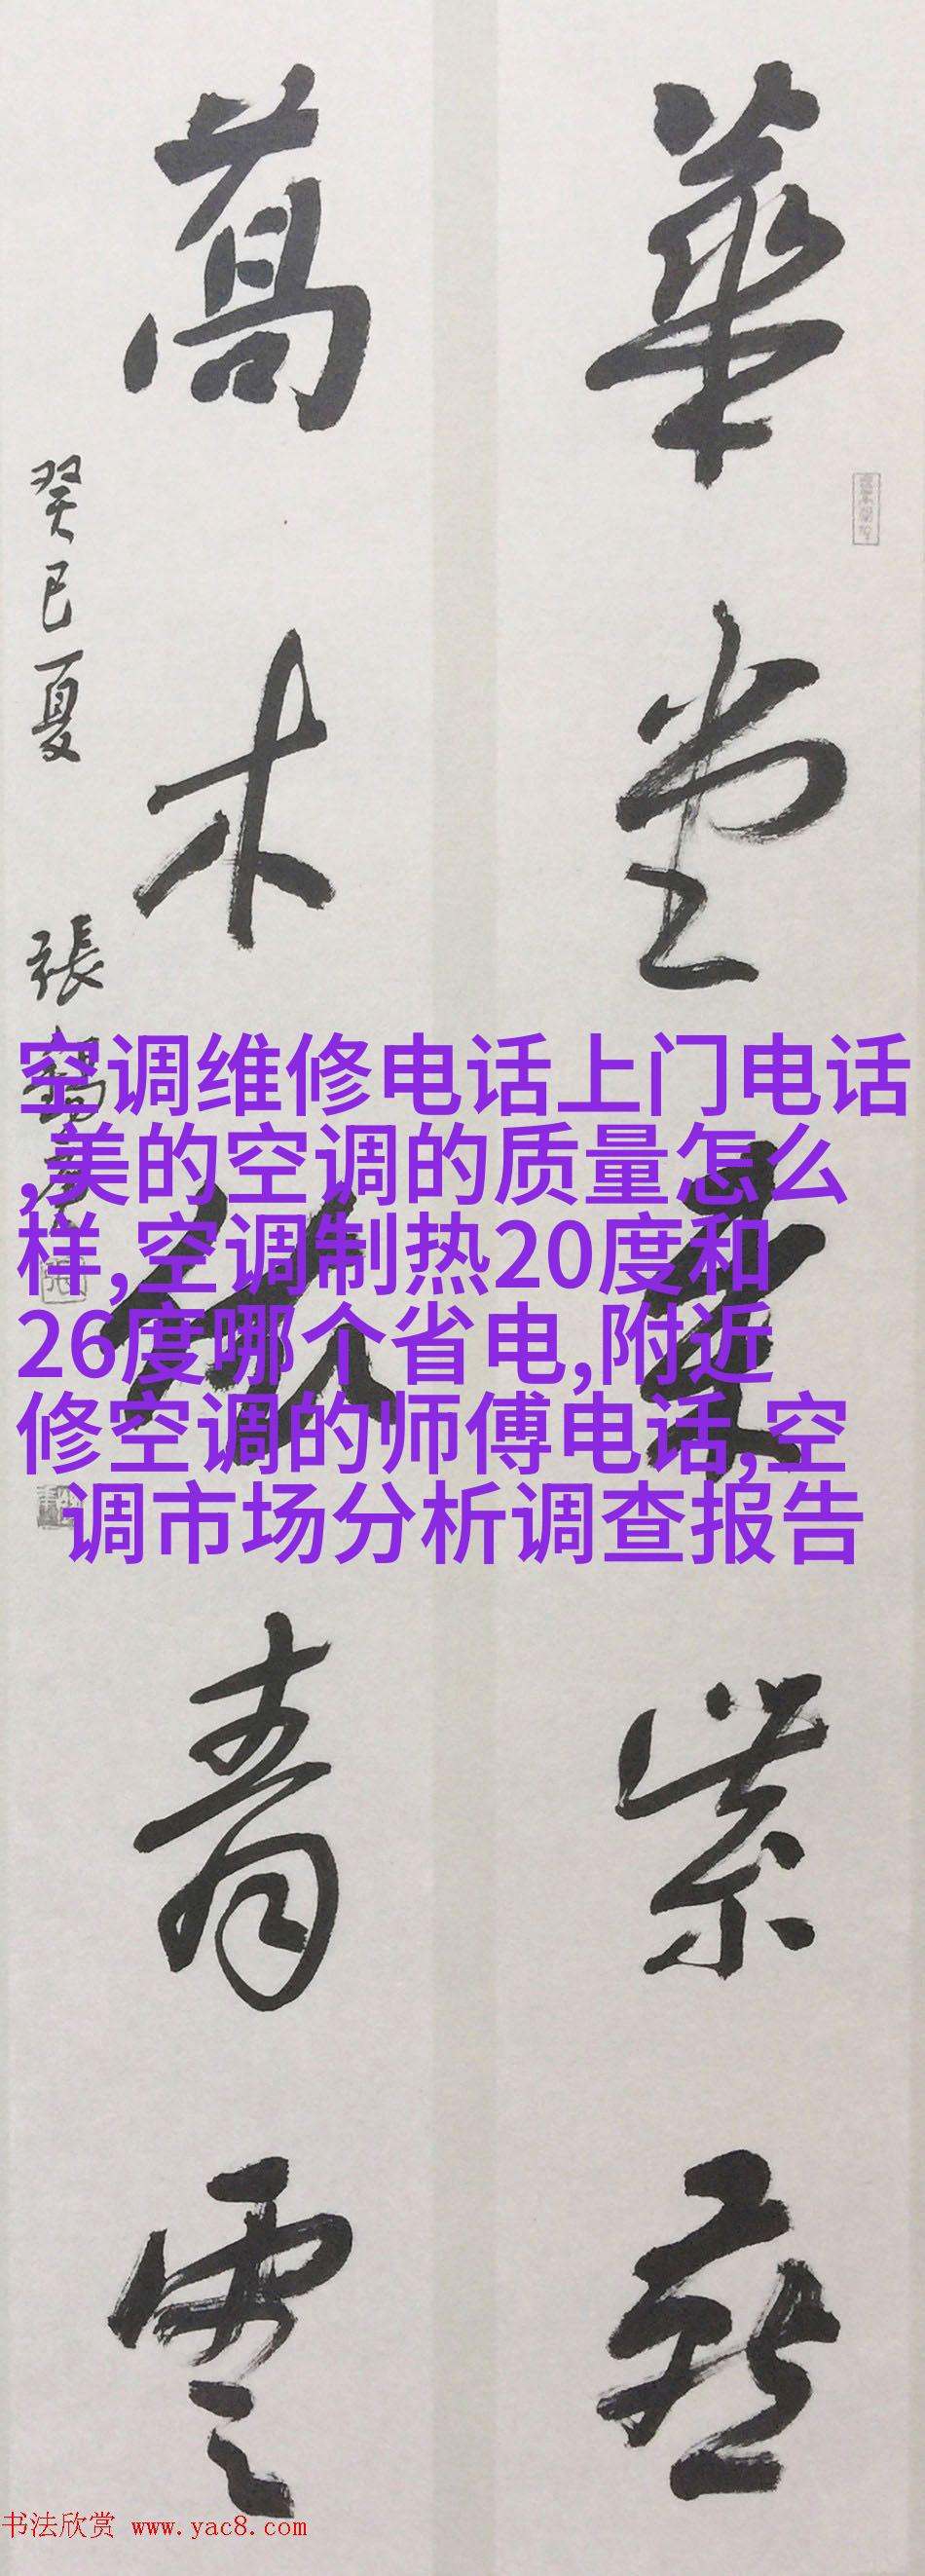 華堂紫燕
萬木青雲
癸巳夏 張
空调维修电话上门电话
,美的空调的质量怎么
样,空调制热20度和
26度哪个省电,附近
修空调的师傅电话,空
调市场分析调查报告
书法欣赏 www.yac8.com